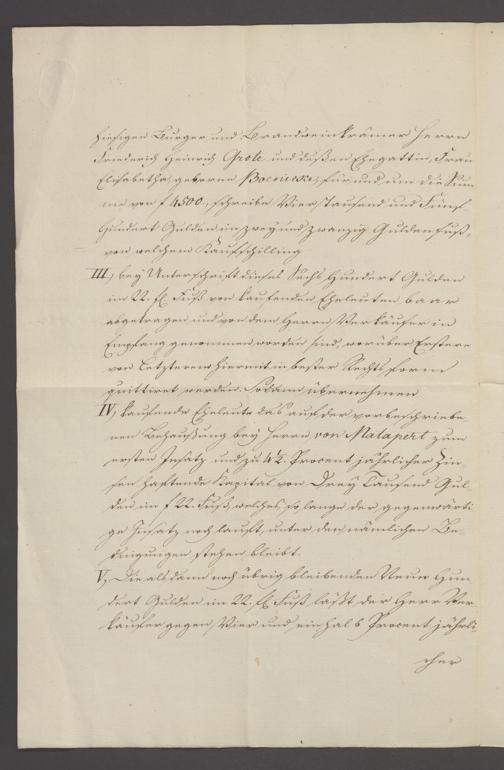 hiesigen Burger und Brandweinkrämer Herrn
Friederich Heinrich Grote und deßen Ehegattin, Frau
Elisabetha, geborne für und um die Sum¬
me von f 4500., schreibe Vier Tausend und Fünf
Hundert Gulden in zwey und zwanzig Gulden Fuß,
von welchem Kaufschilling
III, bey Unterschrift dieses Sechs Hundert Gulden
im 22. fl. Fuß von kaufenden Eheleuten baar
abgetragen und von dem Herrn Verkäufer in
Empfang genommen worden sind, worüber Erstere
von Letzterem hiermit in bester Rechts form
quittiret werden. Sodann übernehmen
IV, kaufende Eheleute das auf der vorbeschriebe¬
nen Behaußung bey Herrn von Malapert zum
ersten Insatz und zu 4½ Procent jährlicher Zin¬
sen haftende Kapital von Drey Tausend Gul¬
den im f 22. Fuß, welches, so lange der gegenwärti¬
ge Insatz noch lauft, unter den nämlichen Be¬
dingungen stehen bleibt.
V, Die alsdann noch übrig bleibenden Neun Hun¬
dert Gulden im 22. fl. Fuß läßt der Herr Ver¬
käufer gegen Vier und ein halb Procent jährli
cher